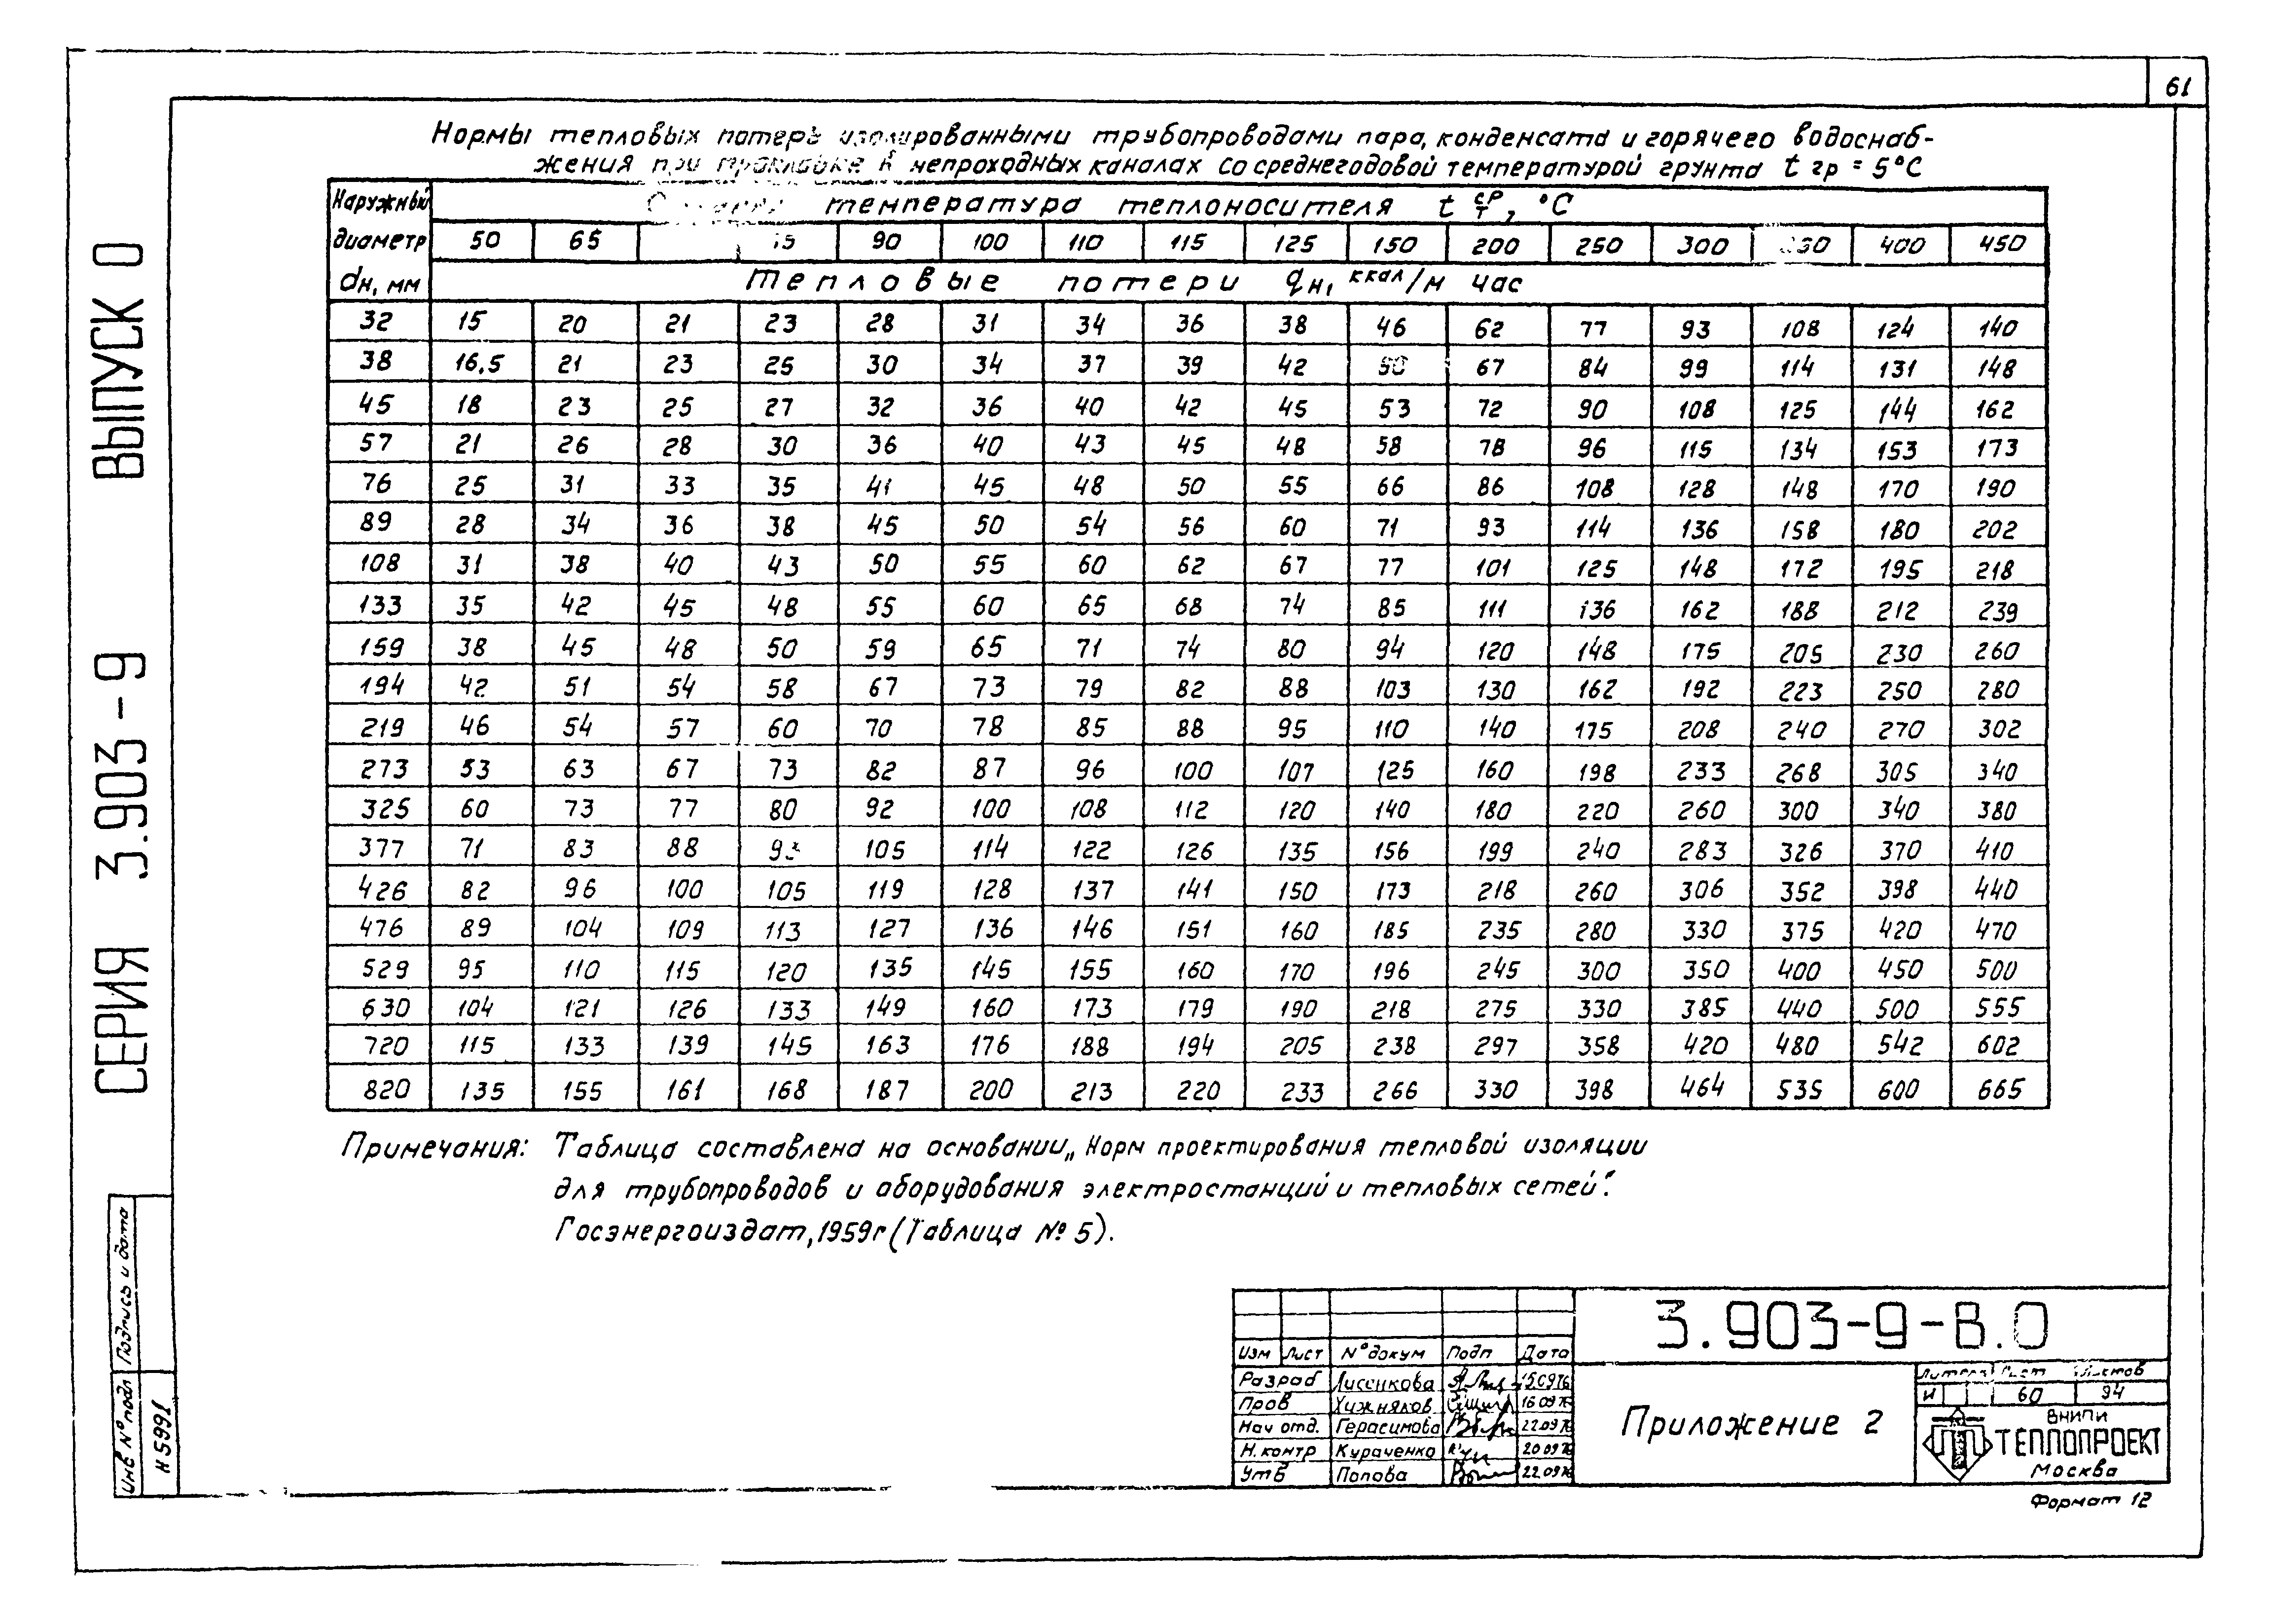 61
Нормы тепловых потерь изолированными трубопроводами пара, конденсата и горячего водоснаб-
жения при прокладке в непроходных каналах со среднегодовой температурой грунта t гр = 5°С
Наружный диаметр dн, мм
температура теплоносителя t ср т, °С
50 65 75 90 100 110 115 125 150 200 250 300 400 450
Тепловые потери qн, ккал/м час
32 15 20 21 23 28 31 34 36 38 46 62 77 93 108 124 140
38 16,5 21 23 25 30 34 37 39 42 50 67 84 99 114 131 148
45 18 23 25 27 32 36 40 42 45 53 72 90 108 125 144 162
57 21 26 28 30 36 40 43 45 48 58 78 96 115 134 153 173
76 25 31 33 35 41 45 48 50 55 66 86 108 128 148 170 190
89 28 34 36 38 45 50 54 56 60 71 93 114 136 158 180 202
108 31 38 40 43 50 55 60 62 67 77 101 125 148 172 195 218
133 35 42 45 48 55 60 65 68 74 85 111 136 162 188 212 239
159 38 45 48 50 59 65 71 74 80 94 120 148 175 205 230 260
194 42 51 54 58 67 73 79 82 88 103 130 162 192 223 250 280
219 46 54 57 60 70 78 85 88 95 110 140 175 208 240 270 302
273 53 63 67 73 82 87 96 100 107 125 160 198 233 268 305 340
325 60 73 77 80 92 100 108 112 120 140 180 220 260 300 340 380
377 71 83 88 105 114 122 126 135 156 199 240 283 326 370 410
426 82 96 100 105 119 128 137 141 150 173 218 260 306 352 398 440
476 89 104 109 113 127 136 146 151 160 185 235 280 330 375 420 470
529 95 110 115 120 135 145 155 160 170 196 245 300 350 400 450 500
630 104 121 126 133 149 160 173 179 190 218 275 330 385 440 500 555
720 115 133 139 145 163 176 188 194 205 238 297 358 420 480 542 602
820 135 155 161 168 187 200 213 220 233 266 330 398 464 535 600 665
Примечания: Таблица составлена на основании „Норм проектирования тепловой изоляции
для трубопроводов и оборудования электростанций и тепловых сетей".
Госэнергоиздат, 1959г (Таблица № 5).
СЕРИЯ 3.903-9 ВЫПУСК 0
Инв № подл Подпись и дата
Н 5991
3.903-9-В.0
Изм Лист № докум Подп Дата
Разраб Лисенкова 15.09.76
Пров Хижняков 16 09 76
Нач отд. Герасимова 22.09.76
Н. контр Кураченко 20 09 76
Утв Попова 22.09.76
Приложение 2
Литера Лист Листов
И 60 94
ВНИПИ
ТЕПЛОПРОЕКТ
Москва
Формат 12